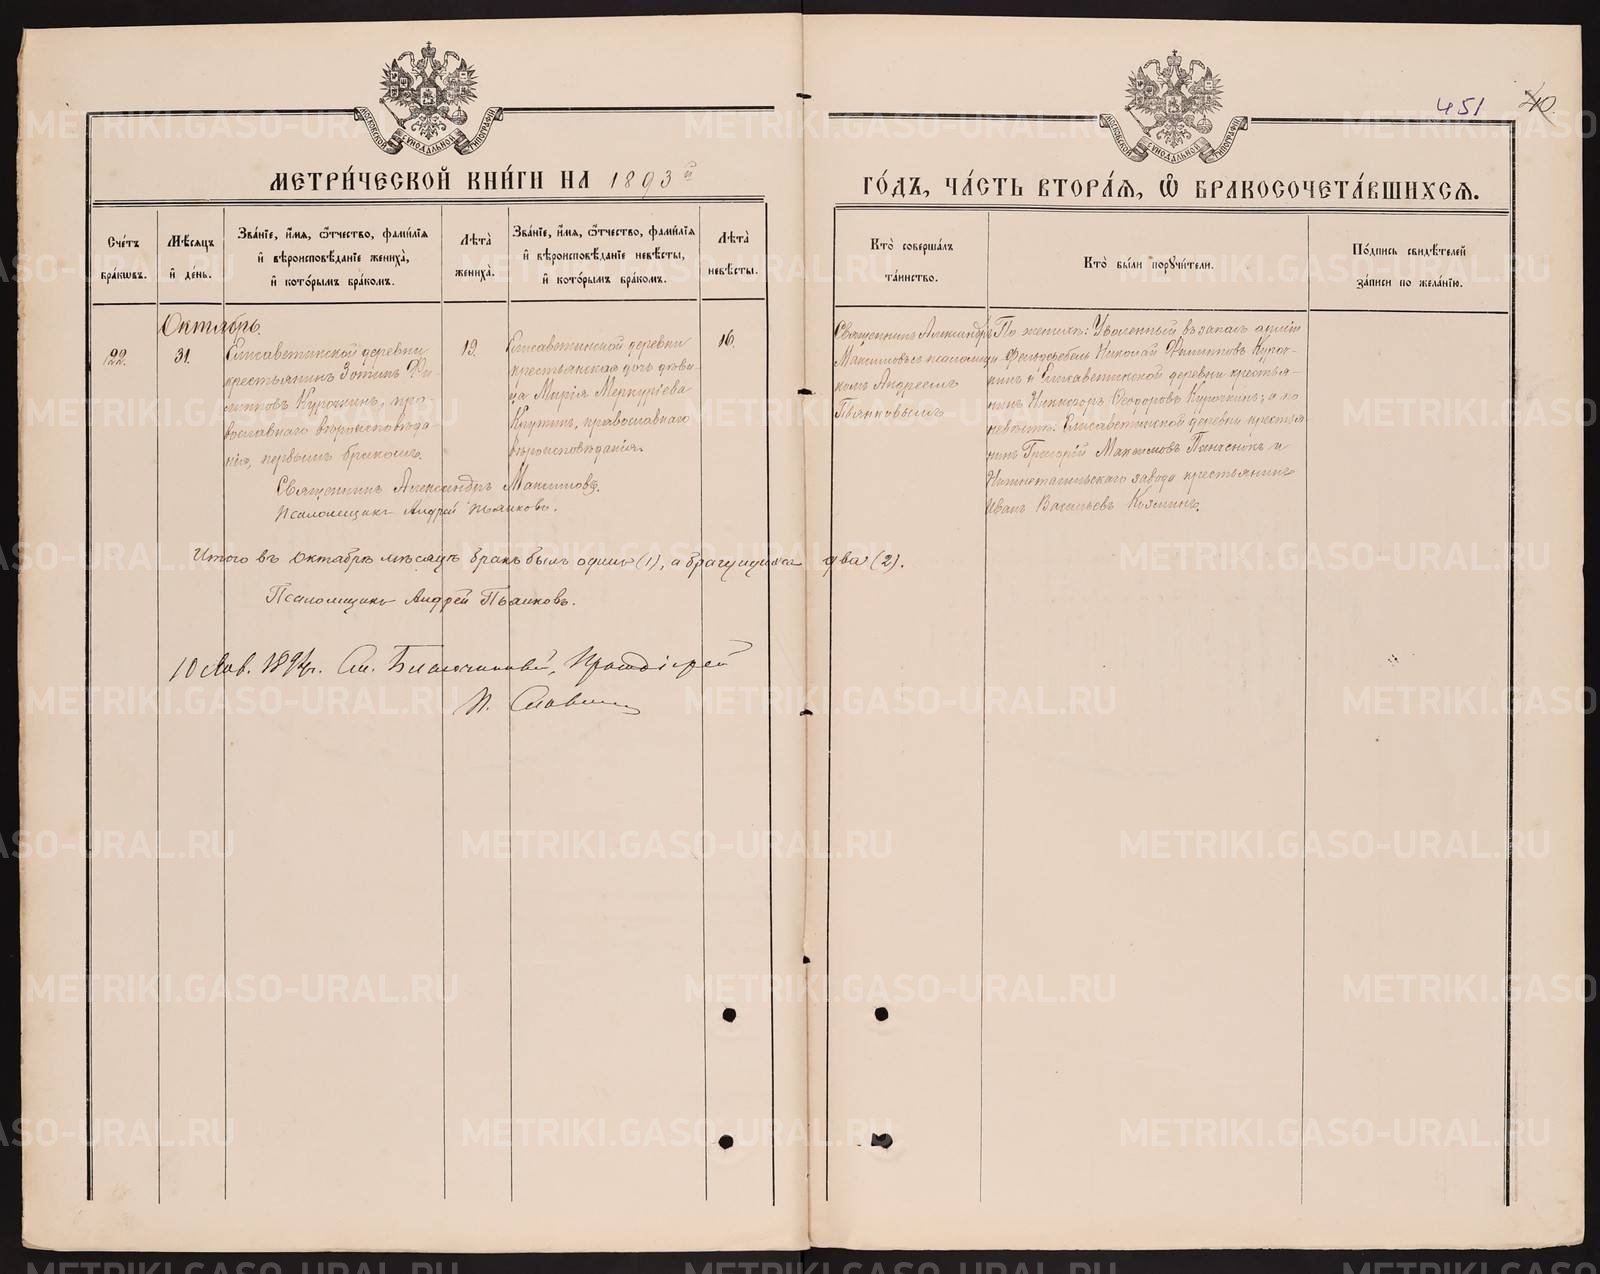 451 40
МОСКОВСКОЙ СѴНОДАЛЬНОЙ ТИПОГРАФІИ
МОСКОВСКОЙ СѴНОДАЛЬНОЙ ТИПОГРАФІИ
МЕТРИ́ЧЕСКОЙ КНИ́ГИ НА 1893й
ГО́ДЪ, ЧА́СТЬ ВТОРА́Я, Ѡ҆ БРАКОСОЧЕТА́ВШИХСЯ.
Сче́тъ
бра́кѡвъ.
Мѣ́сяцъ
и҆ де́нь.
Зва́ніе, и҆́мя, ѻ҆́тчество, фами́лія
и҆ вѣроисповѣ́даніе жениха̀,
и҆ кото́рымъ бра́комъ.
Лѣ́та
жениха̀.
Зва́ніе, и҆́мя, ѻ҆́тчество, фами́лія
и҆ вѣроисповѣ́даніе невѣ́сты,
и҆ кото́рымъ бра́комъ.
Лѣ́та
невѣ́сты.
Кто̀ соверша́лъ
та́инство.
Кто̀ бы́ли порꙋчи́тели.
По́дпись свидѣ́телей
за́писи по жела́нію.
Октябрь.
22.
31.
Елисаветинской деревни
крестьянинъ Зотикъ Фи-
липповъ Курочкинъ, пра-
вославнаго вѣроисповѣда-
нія, первымъ бракомъ.
19.
Елисаветинской деревни
крестьянская дочь дѣви-
ца Марія Меркуріева
Крутикъ, православнаго
вѣроисповѣданія.
16.
Священникъ Александръ
Максимовъ съ псаломщи-
комъ Андреемъ
Пьянковымъ
По женихѣ: Уволенный въ запасъ арміи
фельдфебель Николай Филипповъ Куроч-
кинъ и Елисаветинской деревни крестья-
нинъ Никифоръ Ѳеодоровъ Курочкинъ; а по
невѣстѣ: Елисаветинской деревни крестья-
нинъ Григорій Максимовъ и
Нижнетагильскаго завода крестьянинъ
Иванъ Васильевъ Козминъ.
Священникъ Александръ Максимовъ.
Псаломщикъ Андрей Пьянковъ.
Итого въ Октябрѣ мѣсяцѣ бракъ былъ одинъ (1), а брачущихся два (2).
Псаломщикъ Андрей Пьянковъ.
10 Янв. 1894г. См. Благочинный, Протоіерей
П. Славнинъ
METRIKI.GASO-URAL.RU